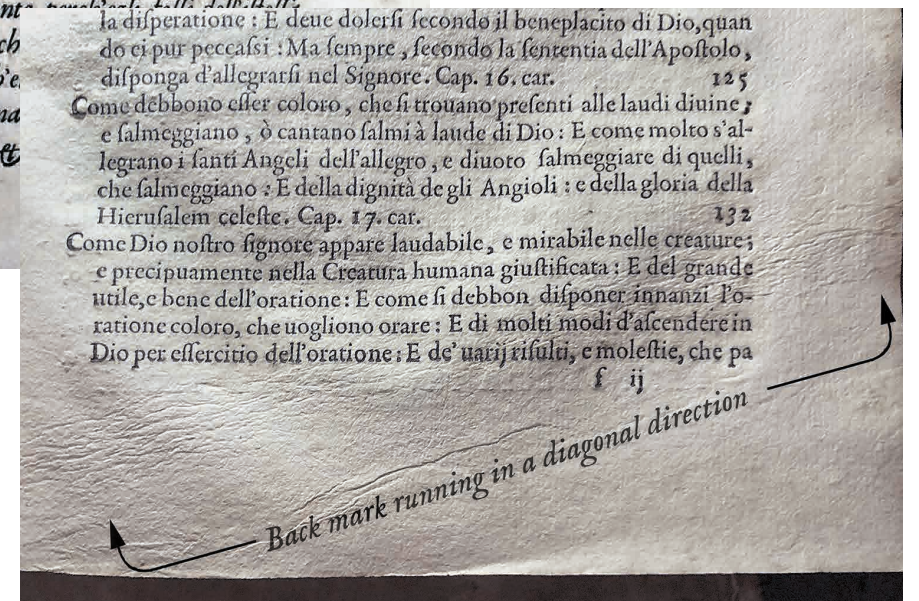 la disperatione : E deue dolersi secondo il beneplacito di Dio,quan
do ei pur peccassi : Ma sempre , secondo la sententia dell'Apostolo,
disponga d'allegrarsi nel Signore. Cap. 16. car. 125
Come debbono esser coloro , che si trouano presenti alle laudi diuine ;
e salmeggiano , ò cantano salmi à laude di Dio : E come molto s'al-
legrano i santi Angeli dell'allegro , e diuoto salmeggiare di quelli,
che salmeggiano : E della dignità de gli Angioli : e della gloria della
Hierusalem celeste. Cap. 17. car. 132
Come Dio nostro signore appare laudabile , e mirabile nelle creature;
e precipuamente nella Creatura humana giustificata : E del grande
utile,e bene dell'oratione : E come si debbon disponer innanzi l'o-
ratione coloro, che uogliono orare : E di molti modi d'ascendere in
Dio per essercitio dell'oratione : E de' uarij risulti, e molestie, che pa
f ij
Back mark running in a diagonal direction